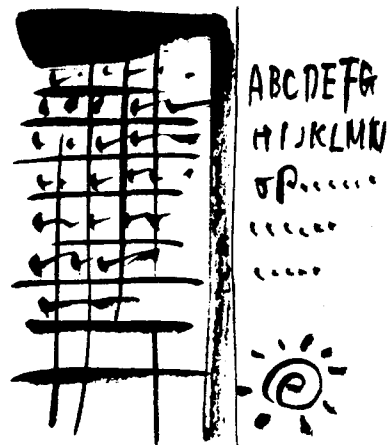 ABCDEFG
HIJKLMN
OP.......
e